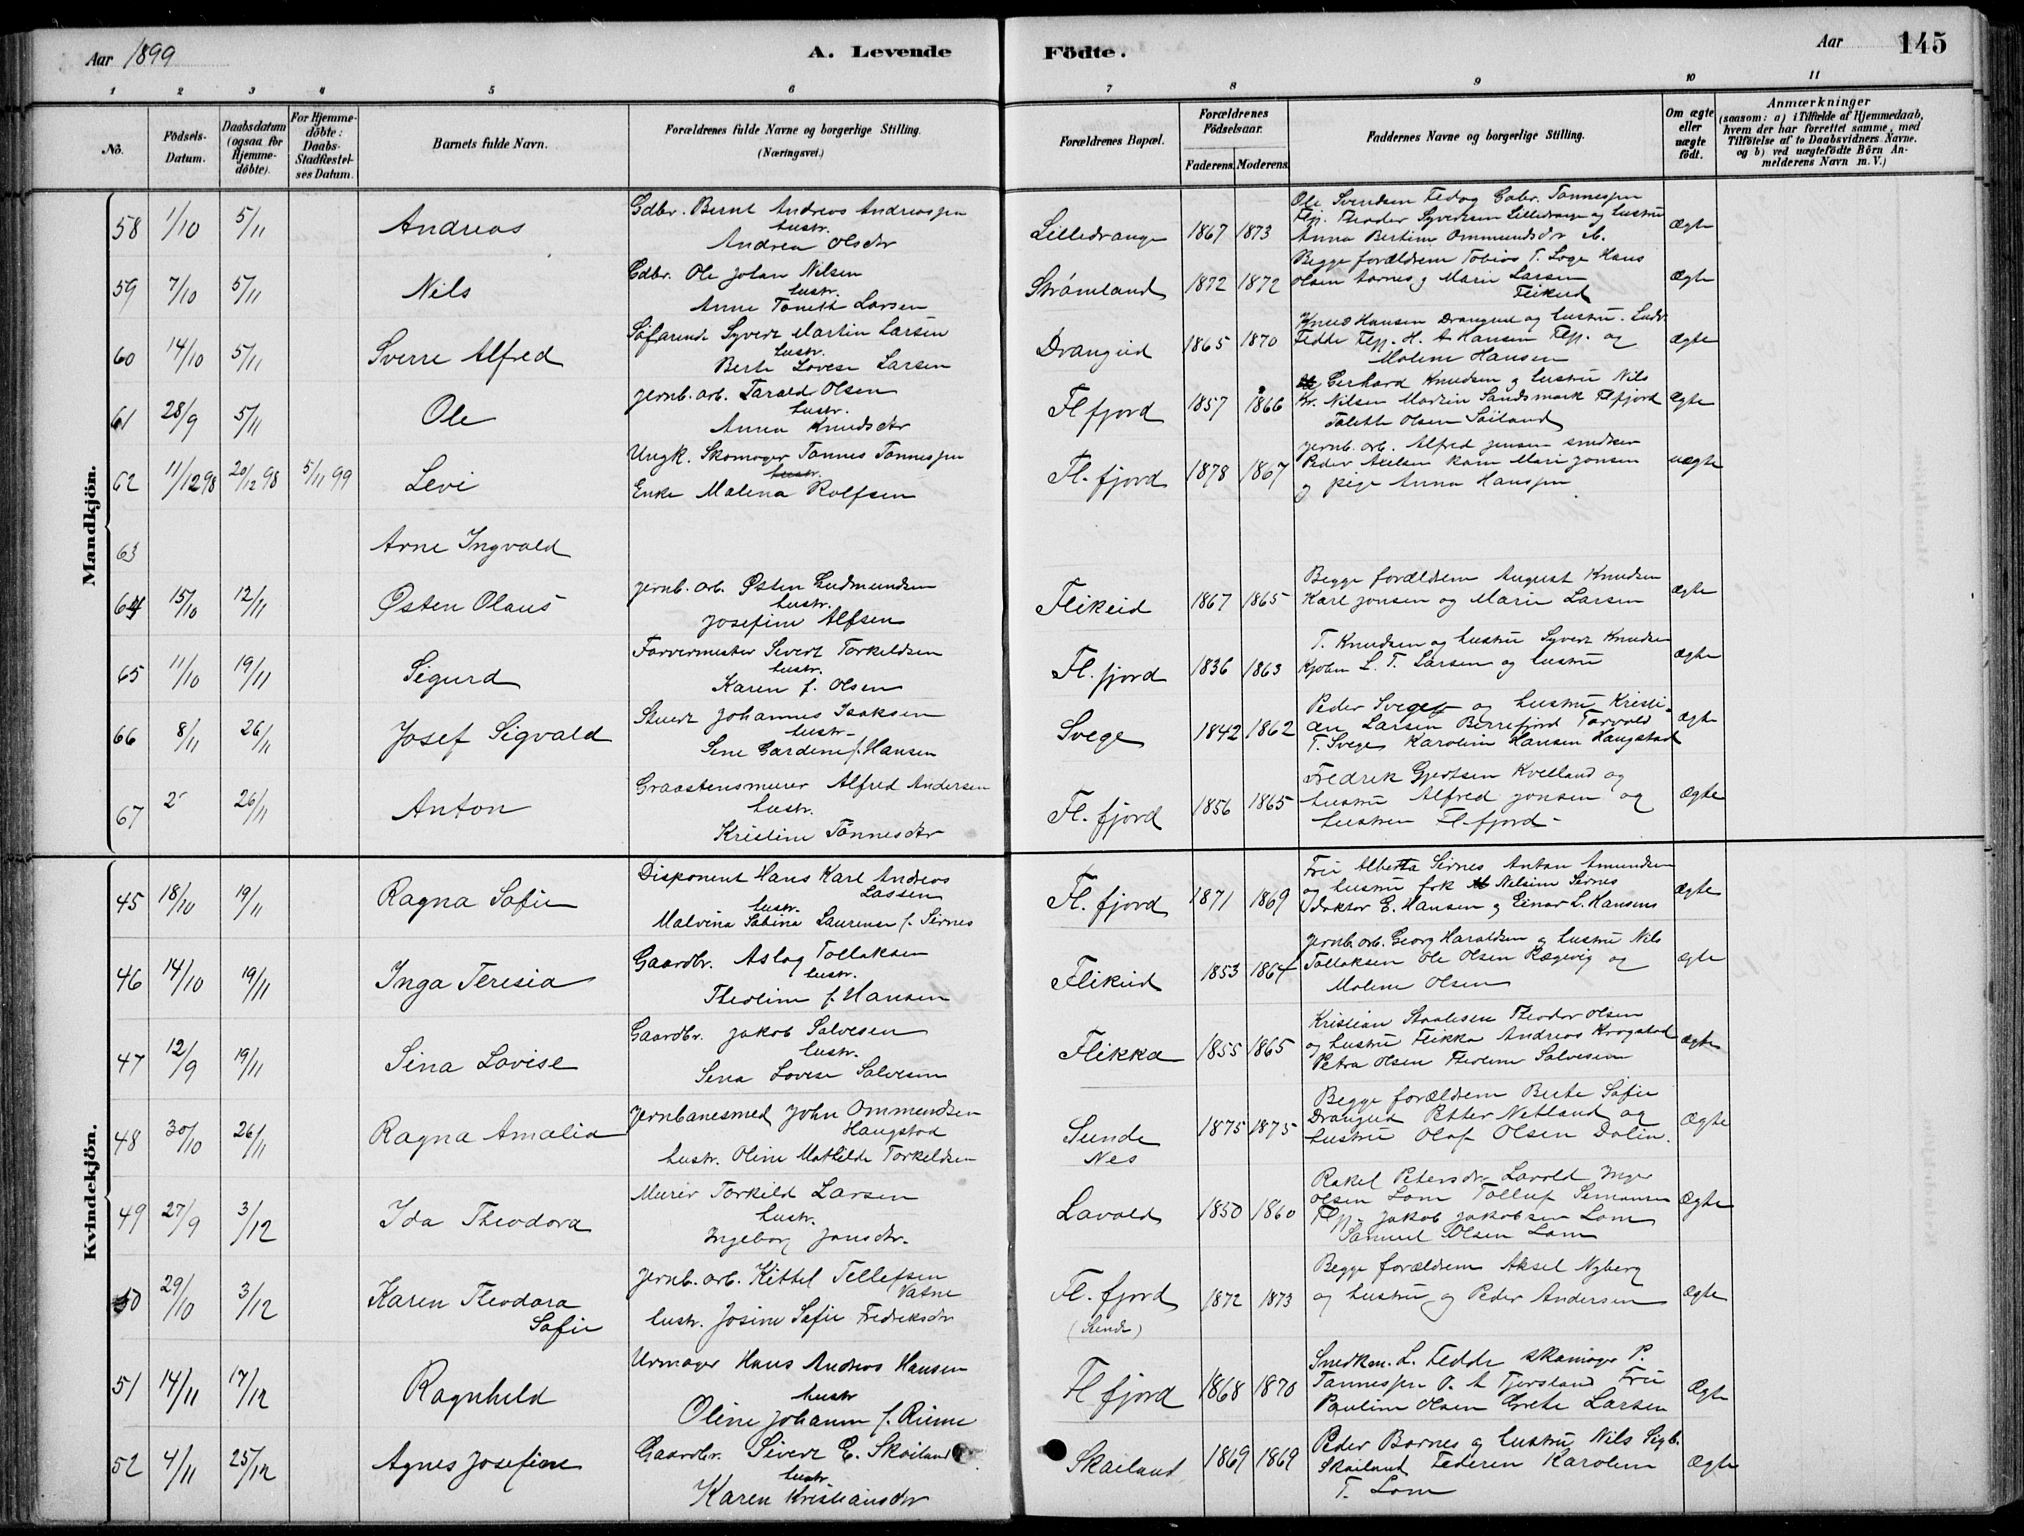 Aar 1899
A. Levende
Födte.
Aar
145
1 2 3 4 5 6 7 8 9 10 11
No.
Födsels-Datum.
Daabsdatum (ogsaa for Hjemme-döbte).
For Hjemme-döbte: Daabs-Stadfæstel-ses Datum.
Barnets fulde Navn.
Forældrenes fulde Navne og borgerlige Stilling.
(Næringsvei.)
Forældrenes Bopæl.
Forældrenes Födselsaar.
Faderens. Moderens.
Faddernes Navne og borgerlige Stilling.
Om ægte eller uægte födt.
Anmærkninger
(saasom: a) i Tilfælde af Hjemmedaab, hvem der har forrettet samme, med Tilföielse af to Daabsvidners Navne. og b) ved uægtefödte Börn An-melderens Navn m. V.)
Mandkjön.
58 1/10 5/11 Andreas
Gdbr. Bernt Andreas Andreassen
hustr.
Andrea Olsdtr
Lilledrange 1867 1873
Ole Svendsen Fedog Gabr. Tønnessen
Flj. Theodor Syvertsen Lilledrange og hustru
Anna Bertine Ommundsdtr
Ægte
59 7/10 5/11 Nils
Gdbr. Ole Johan Nilsen
hustr.
Anne Tomith Larsen
Strømland 1872 1872
Begge forældrene Tobias T. Loge Hans
Olsen Aarnes og Marie Larsen
Flikeid
Ægte
60 14/10 5/11 Sverre Alfred
Söfarende Syvert Martin Larsen
hustr.
Berte Lovise Larsen
Drangeid 1865 1870
Knud Hansen Drangeid og hustru. Ludv.
Fedde Flj. H. A Hansen Flj. og
Malene Hansen
Ægte
61 28/9 5/11 Ole
Jernb. arb. Tarald Olsen
hustr.
Anna Knudsdtr
Fl fjord 1857 1866
Gerhard Knudsen og hustru Nils
Kr. Nilsen Martin Sandsmark Flfjord
Talette Olsen Söiland
Ægte
62 11/12 98 20/12 98 5/11 99 Levi
Ungk. Skomager Tønnes Tønnessen
hustr.
Enke Malena Rolfsen
Fl. fjord 1878 1867
Jernb. arb. Alfred Jensen smedsv
Peder Axelsen kone Mari Jonsen
og pige Anna Hanssen
uægte
63 Arne Ingvald
64 15/10 12/11 Østen Olaus
Jernb. arb. Østen Gudmundsen
hustr.
Josefine Alfsen
Flikeid 1867 1865
Begge forældrene August Knudsen
Karl Jonsen og Marie Larsen
Ægte
65 11/10 19/11 Sigurd
Farvermester Sivert Torkeldsen
hustr.
Karen f. Olsen
Fl. fjord 1836 1863
T. Knudsen og hustru Syvert Knudsen
Kjøbm L. T. Larsen og hustru
Ægte
66 8/11 26/11 Josef Sigvald
Skuedr Johannes Isaksen
hustr.
Sene Gardine f. Hansen
Svege 1842 1862
Peder Svege og hustru Kristi-
an Larsen Berrefjord Torvald
T. Svege Karoline Hansen Haugstad
Ægte
67 26/11 Anton
Graastensmurer Alfred Andersen
hustr.
Kristine Tönnesdtr
Fl. fjord 1856 1865
Fredrik Gjertsen Kvelland og
hustru Alfred Jonsen og
hustru Fl-fjord-
Ægte
Kvindekjön.
45 18/10 19/11 Ragna Sofie
Disponent Hans Karl Andreas
Lassen
hustr.
Malvina Sabina Laurense f. Sirnes
Fl. fjord 1871 1869
Fru Alberta Sirnes Anton Amundsen
og hustru frk Nelsine Sirnes
Doktor E. Hansen og Einar L. Hansens
Ægte
46 14/10 19/11 Inga Teresia
Gaardbr. Aslag Tollaksen
hustr.
Theoline f. Hansen
Flikeid 1853 1864
Jernb. arb. Georg Haraldsen og hustru Nils
Tollaksen Ole Olsen Rægevig og
Malene Olsen
Ægte
47 12/9 19/11 Sina Lovise
Gaardbr. Jakob Salvesen
hustr.
Sena Lovise Salvesen
Flikka 1855 1865
Kristian Staalesen Theodor Olsen
og hustru Flikka Andreas Krogstad
Petra Olsen Theoline Salvesen
Ægte
48 30/10 26/11 Ragna Amalia
Jernbanesmed John Ommundsen
Haugstad
hustr. Oline Mathilde Torkeldsen
Sunde
Nes
1875 1875
Begge forældrene Berte Sofie
Drangeid Petter Netland og
hustru Olaf Olsen Dalin.
Ægte
49 27/9 3/12 Ida Theodora
Murer Torkild Larsen
hustr.
Ingeborg Jonsdtr.
Lavold 1850 1860
Rakel Petersdtr Lavold Inger
Olsen Lom Tollef Simonsen
Flj. Jakob Jakobsen Lom
Samuel Olsen Lom
Ægte
50 29/10 3/12 Karen Theodora
Sofie
Jernb. arb. Kittel Tellefsen
Vatne
hustr. Josine Sofie Fredriksdtr
Fl. fjord
(Sunde)
1872 1873
Begge forældrene Aksel Nyberg
og hustru og Peder Andersen
Ægte
51 14/11 17/12 Ragnhild
Urmager Hans Andreas Hansen
hustr
Oline Johanne f. Rinne
Fl fjord 1868 1870
Snedkerm. L. Fedde skomager P.
Tønnessen O. A Tjersland Fru
Pauline Olsen Grete Larsen
Ægte
52 4/11 25/12 Agnes Josefine
Gaardbr. Sivert E. Skailand
hustr
Karen Kristiansdtr
Skailand 1869 1869
Peder Barnes og hustru Nils Sigb.
Skailand Federen Karoline
T. Lom
Ægte